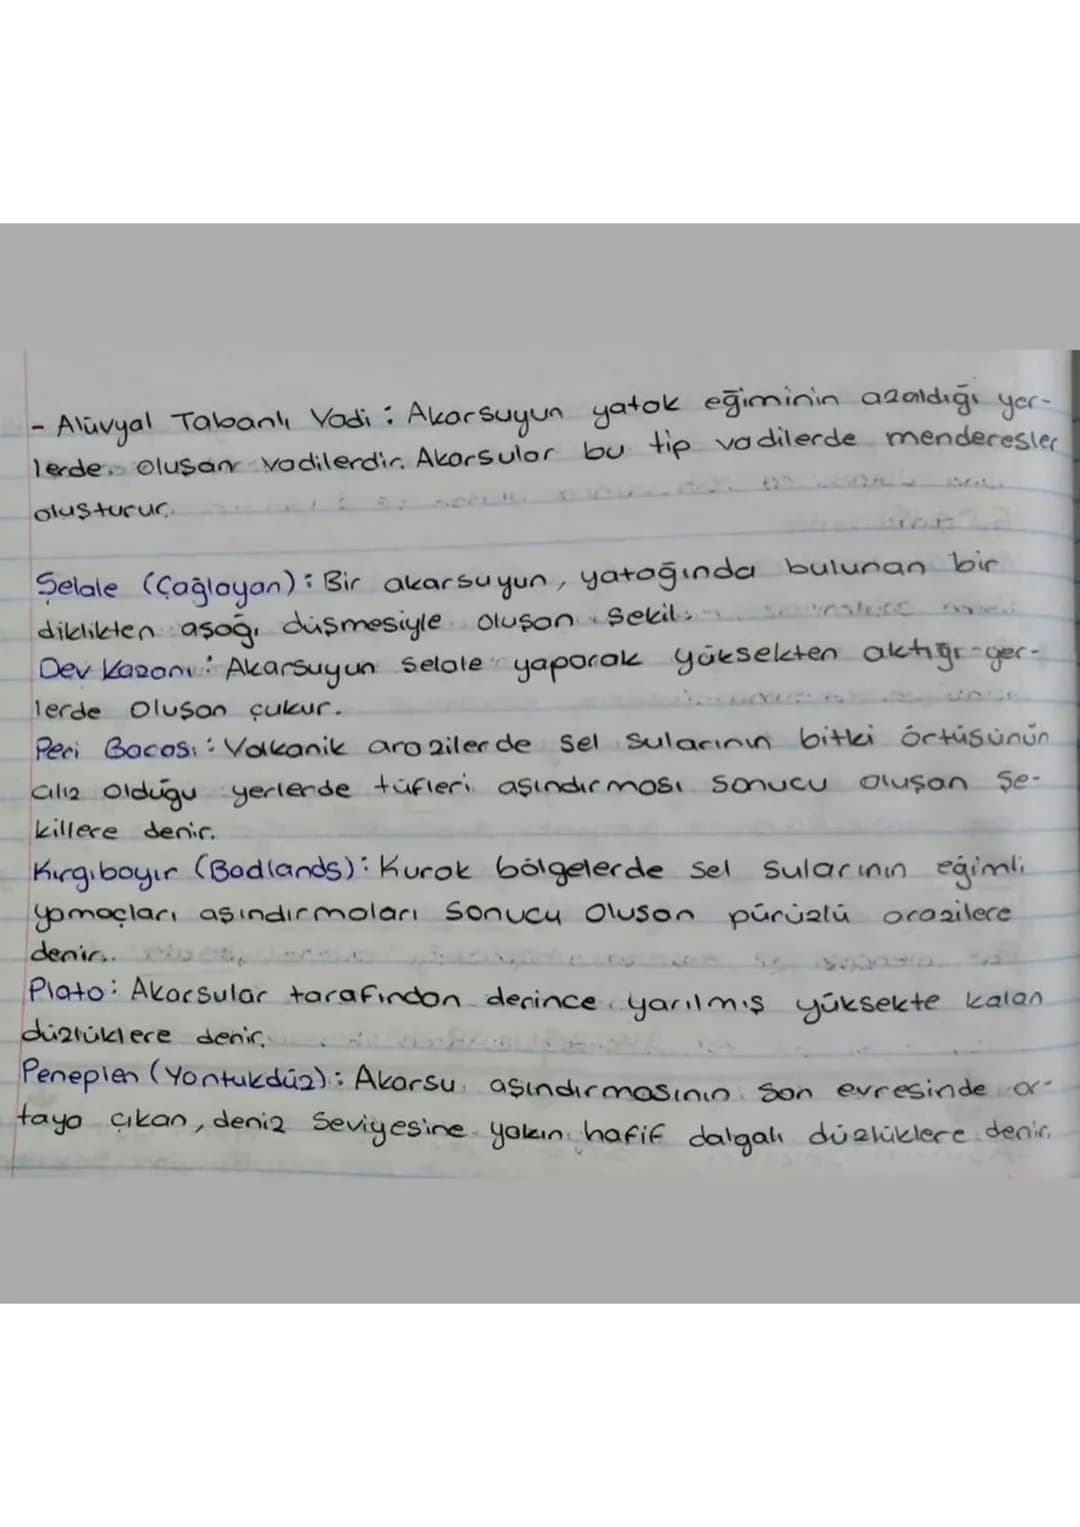 - Alüvyal Tabanlı Vadi : Akarsuyun yatak eğiminin azaldığı yer-
lerde oluşan vadilerdir. Akarsular bu tip vadilerde menderesler
oluşturur.
Şelale (Çağlayan) : Bir akarsuyun, yatağında bulunan bir
diklikten aşağı düşmesiyle oluşan şekil.
Dev Kazanı : Akarsuyun şelale yaparak yüksekten aktığı yer-
lerde oluşan çukur.
Peri Bacası : Volkanik arazilerde sel sularının bitki örtüsünün
cılız olduğu yerlerde tüfleri aşındırması sonucu oluşan şe-
killere denir.
Kırgıbayır (Badlands) : Kurak bölgelerde sel sularının eğimli
yamaçları aşındırmaları sonucu oluşan pürüzlü arazilere
denir.
Plato : Akarsular tarafından derince yarılmış yüksekte kalan
düzlüklere denir.
Peneplen (Yontukdüz) : Akarsu aşındırmasının son evresinde or-
taya çıkan, deniz seviyesine yakın hafif dalgalı düzlüklere denir.